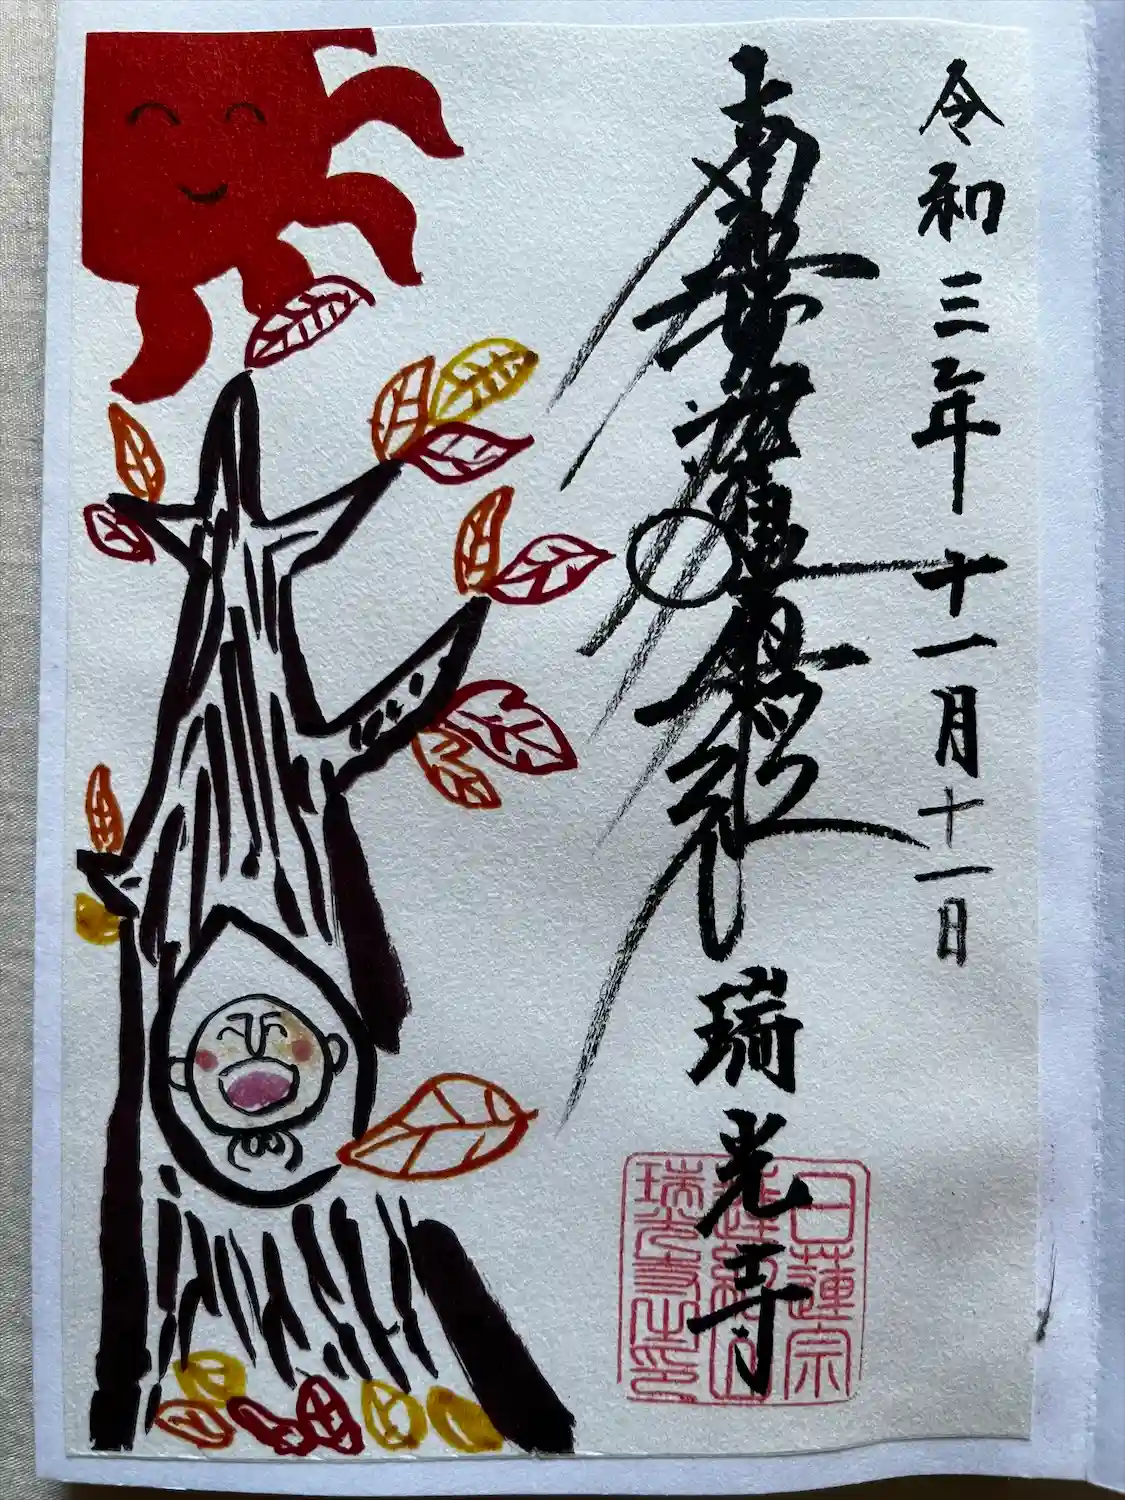 令和三年十一月十一日
南無妙法蓮華經
瑞光寺
日蓮宗
瑞光寺之印